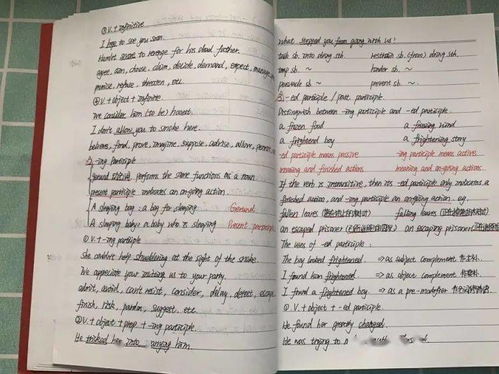 ① V. + infinitive
I hope to see you soon.
Hamlet swore to revenge for his dead father.
agree, aim, choose, claim, decide, demand, expect, manage,
promise, refuse, threaten, etc.
② V. + object + infinitive
We consider him (to be) honest.
I don't allow you to smoke here.
believe, find, prove, imagine, suppose, advise, allow,
-ing participle
Gerund performs the same functions as a noun
present participle indicates an on-going action
A sleeping bag: a bag for sleeping Gerund
A sleeping baby: a baby who is sleeping Present participle
① V. + -ing participle
She couldn't help shuddering at the sight of the snake.
We appreciate your inviting us to your party.
admit, avoid, can't resist, consider, delay, detest, escape
finish, risk, pardon, suggest, etc.
② V. + object + prep + -ing participle
He tricked her into
What stopped you from going with us?
talk sb. into doing sth. restrain sb. (from) doing sth.
hinder sb. ~
persuade sb. ~ prevent sb. ~
-ed participle / past participle
Distinguish between -ing participle and -ed participle
a frozen food a freezing wind
a frightened boy a frightening story
-ed participle means passive -ing participle means active
meaning and finished actions meaning and on-going actions.
If the verb is intransitive, then its -ed participle only indicates a
finished action, and -ing participle an on-going action. eg.
fallen leaves falling leaves
an escaped prisoner an escaping prisoner
The uses of -ed participle:
The boy looked frightened ⇒ as subject complement
I found him frightened ⇒ as object complement
I found a frightened boy ⇒ as a pre-modifier
① V. + object + -ed participle
He found her greatly changed.
He was trying to